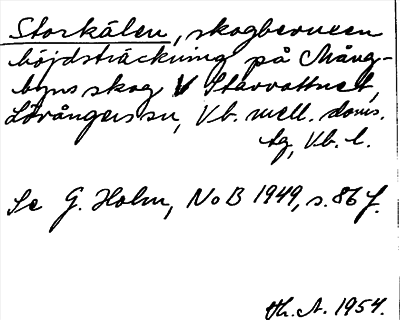 Storkälen, skogberween
höjdsträckning på Mång-
byns skog V Starvattnet,
Lövångers sn, Vb. mell. doms.
tg, Vb. l.
Se G. Holm, NoB 1949, s. 86 f.
Th. A. 1954.